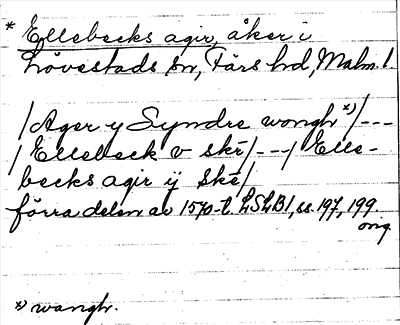 * Ellebecks agir, åker i
Lövestads sn, Färs hd, Malm. l.
/Ager y Syndre wongh x)/---
/Ellebeck v skē/---/Elle-
becks agir ÿ Skē/
förra delen av 1570-t. LSLB1, ss. 197, 199
orig.
x) wangh.